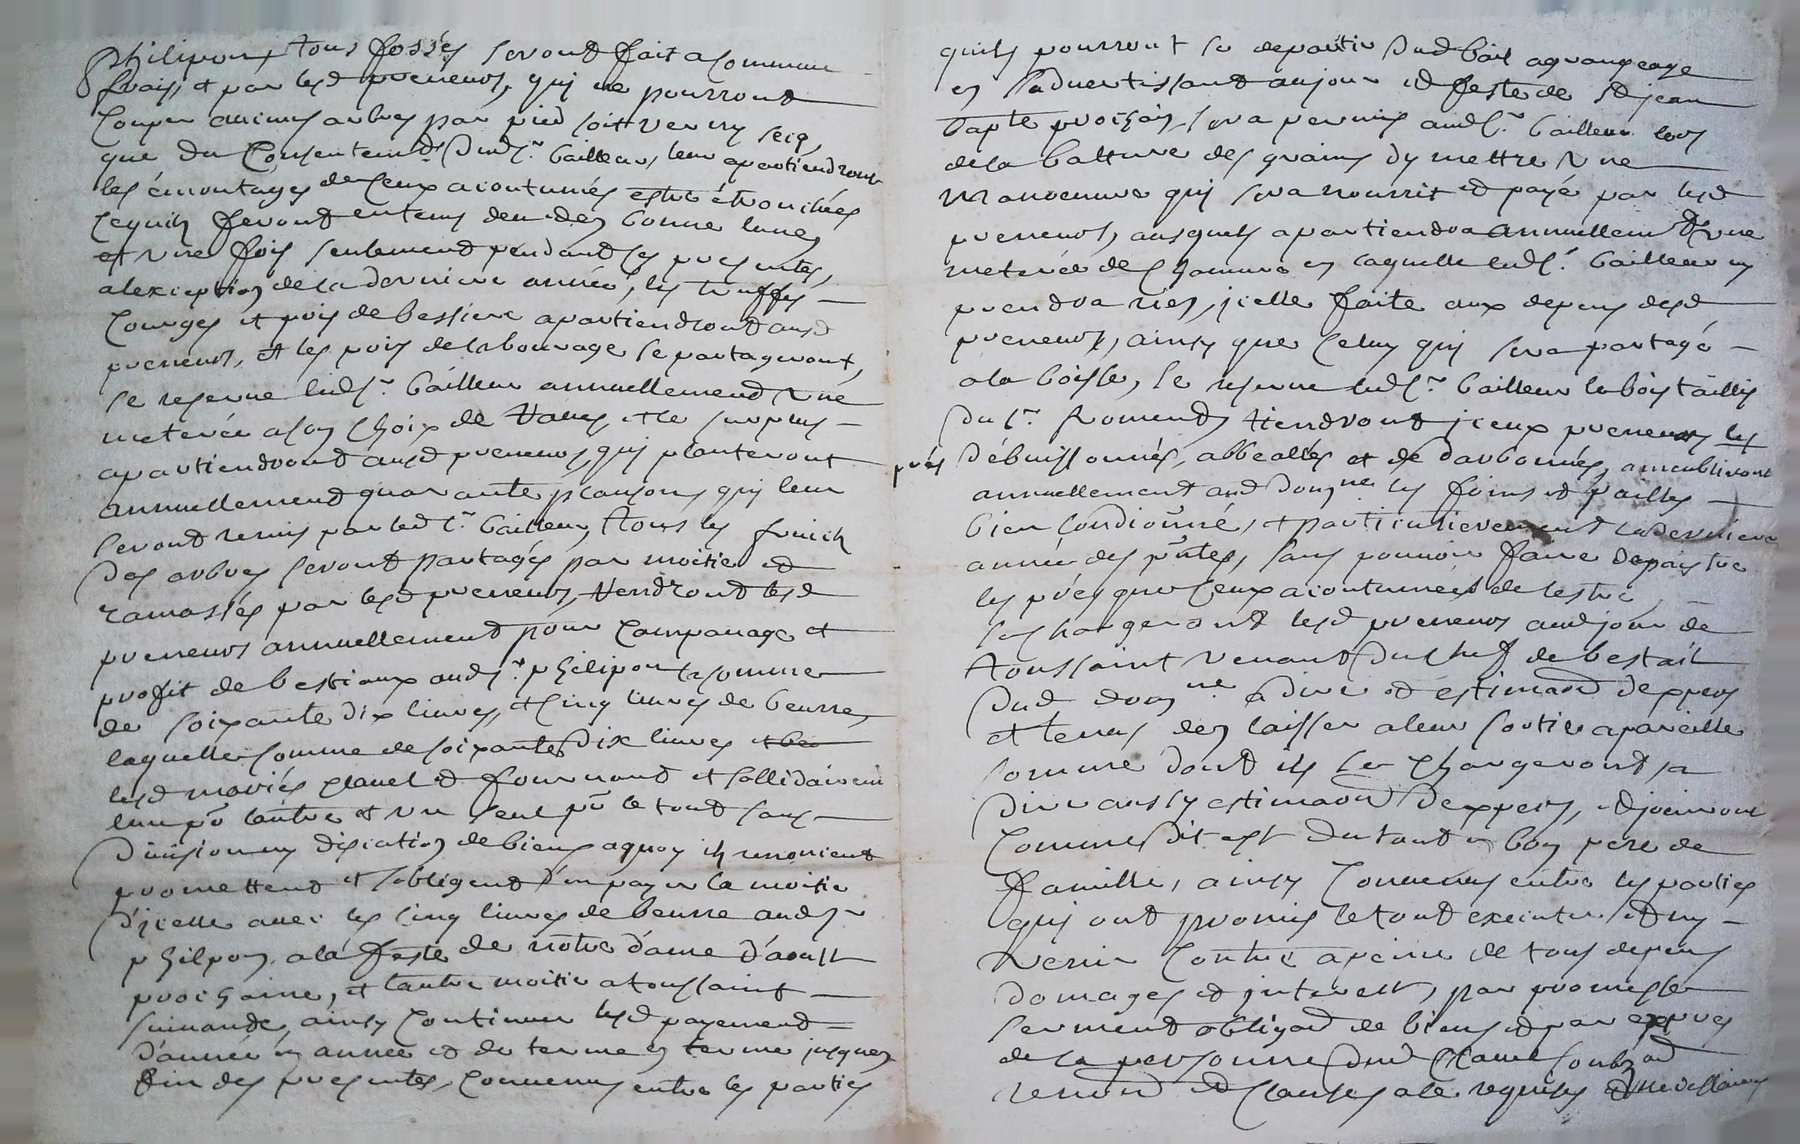 philipon, tous fossés seront fait a commun
frais, et par lesd preneurs, qui ne pourront
Couper aucuns arbres par pied soitt verny secq
que du Consentemt dudsr bailleur, leur apartiendront
les émontages de Ceux acoutumés estre étronchées
Cequils feront en tems deu et en bonne lune,
et une fois seulement pendant les presentes,
alexception de la derniere année, les truffes
Courges et pois de bessiere apartiendront ausd
preneurs, et les pois de labourage se partageront,
se reserve ledsr bailleur annuellement une
meterée a son choix de Raves, et le surplus
apartiendront ausd preneurs, qui planteront
annuellement quarante plançons qui leur
seront remis par led sr bailleur, tous les fruich
des arbres seront partagés par moitié et
ramassés par lesd preneurs, rendront lesd
preneurs annuellement pour Campanage et
profit de bestiaux audsr philipon la somme
de soixante dix livres, et Cinq livres de beurre,
laquelle somme de soixante dix livres
lesd mariés planel et fournand et sollidairemt
lun pr lautre et un seul pr le tout sans
Division ny discution de biens aquoy ils renonient
promettent et sobligent d'en payer la moitié
d'icelle avec les Cinq livres de beurre audsr
philpon, a la feste de notre dame d'aoust
prochaine, et lautre moitié a toussaint
suivante, ainsy Continuer lesd payement
d'année en année et de terme en terme jusques
fin des presentes, Convenus entre les parties
quils pourront se departir dud bail agrangeage
en Sadvertissant aujour et feste de St jean
bapte prochain, sera permis audsr bailleur lors
de la batture des grains dy mettre une
manoeuvre qui sera nourrit et payé par lesd
preneurs, ausquels apartiendra annuellemt une
meterée de Chanvre en laquelle ledsr bailleur ny
prendra rien, jcelle faite aux depens desd
preneurs, ainsy que Celuy qui sera partagé
a la boisse, se reserve ledsr bailleur le bois taillis
Du sr Roment, tiendront jceux preneurs les
prés Débuissonnés, abbealés et de darbonnés, ameubliront
annuellement aud domne les foins et pailles
bien Condionné, et particulierement la derniere
année des pntes, sans pouvoir faire depaistre
les prés que Ceux acoutumées de lestre
se chargeront lesd preneurs audjour de
toussaint venant du chef de bestail
dud domne a dire et estimaon dexpers
et tenus den laisser a leur sortie apareille
somme dont ils se chargeront a
dire aussy estimaon Dexpers, et jouiront
Comme dit est du tout en bon pere de
famille, ainsy Convenus entre les parties
qui ont promis le tout executer et ny
venir Contre a peine de tous depens
Domages et jnterest, par promesse
serment obligaon de biens et par expres
de la personne dud planel soubzon
renon et Clauses a ce requises et necessaires